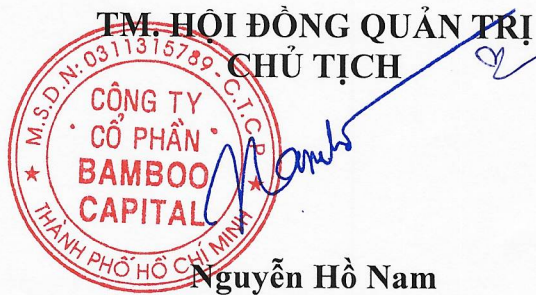 TM. HỘI ĐỒNG QUẢN TRỊ
CHỦ TỊCH
M.S.D.N: 0311315789 - C.T.C.P
CÔNG TY
CỔ PHẦN
BAMBOO
CAPITAL
THÀNH PHỐ HỒ CHÍ MINH
Nguyễn Hồ Nam